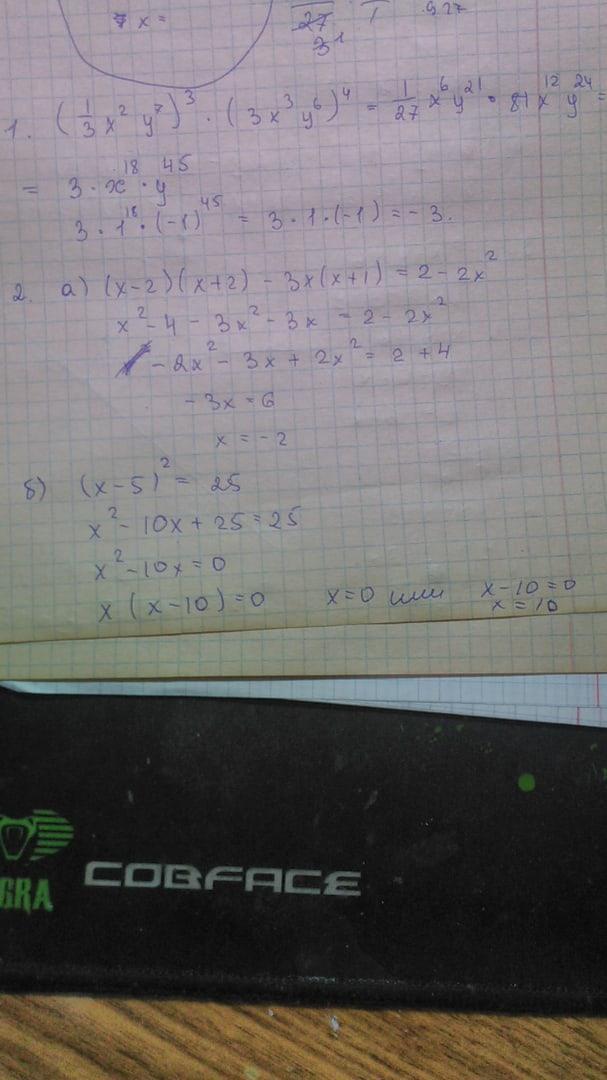 x =
27
31
9.27
1. (1/3 x² y⁷)³ · (3x³ y⁶)⁴ = 1/27 x⁶ y²¹ · 81 x¹² y²⁴ =
= 3 · x¹⁸ · y⁴⁵
3 · 1¹⁸ · (-1)⁴⁵ = 3 · 1 · (-1) = -3.
2. а) (x-2)(x+2) - 3x(x+1) = 2 - 2x²
x² - 4 - 3x² - 3x = 2 - 2x²
- 2x² - 3x + 2x² = 2 + 4
- 3x = 6
x = -2
б) (x-5)² = 25
x² - 10x + 25 = 25
x² - 10x = 0
x (x-10) = 0 x=0 или x-10=0
x=10
GRA COBFACE